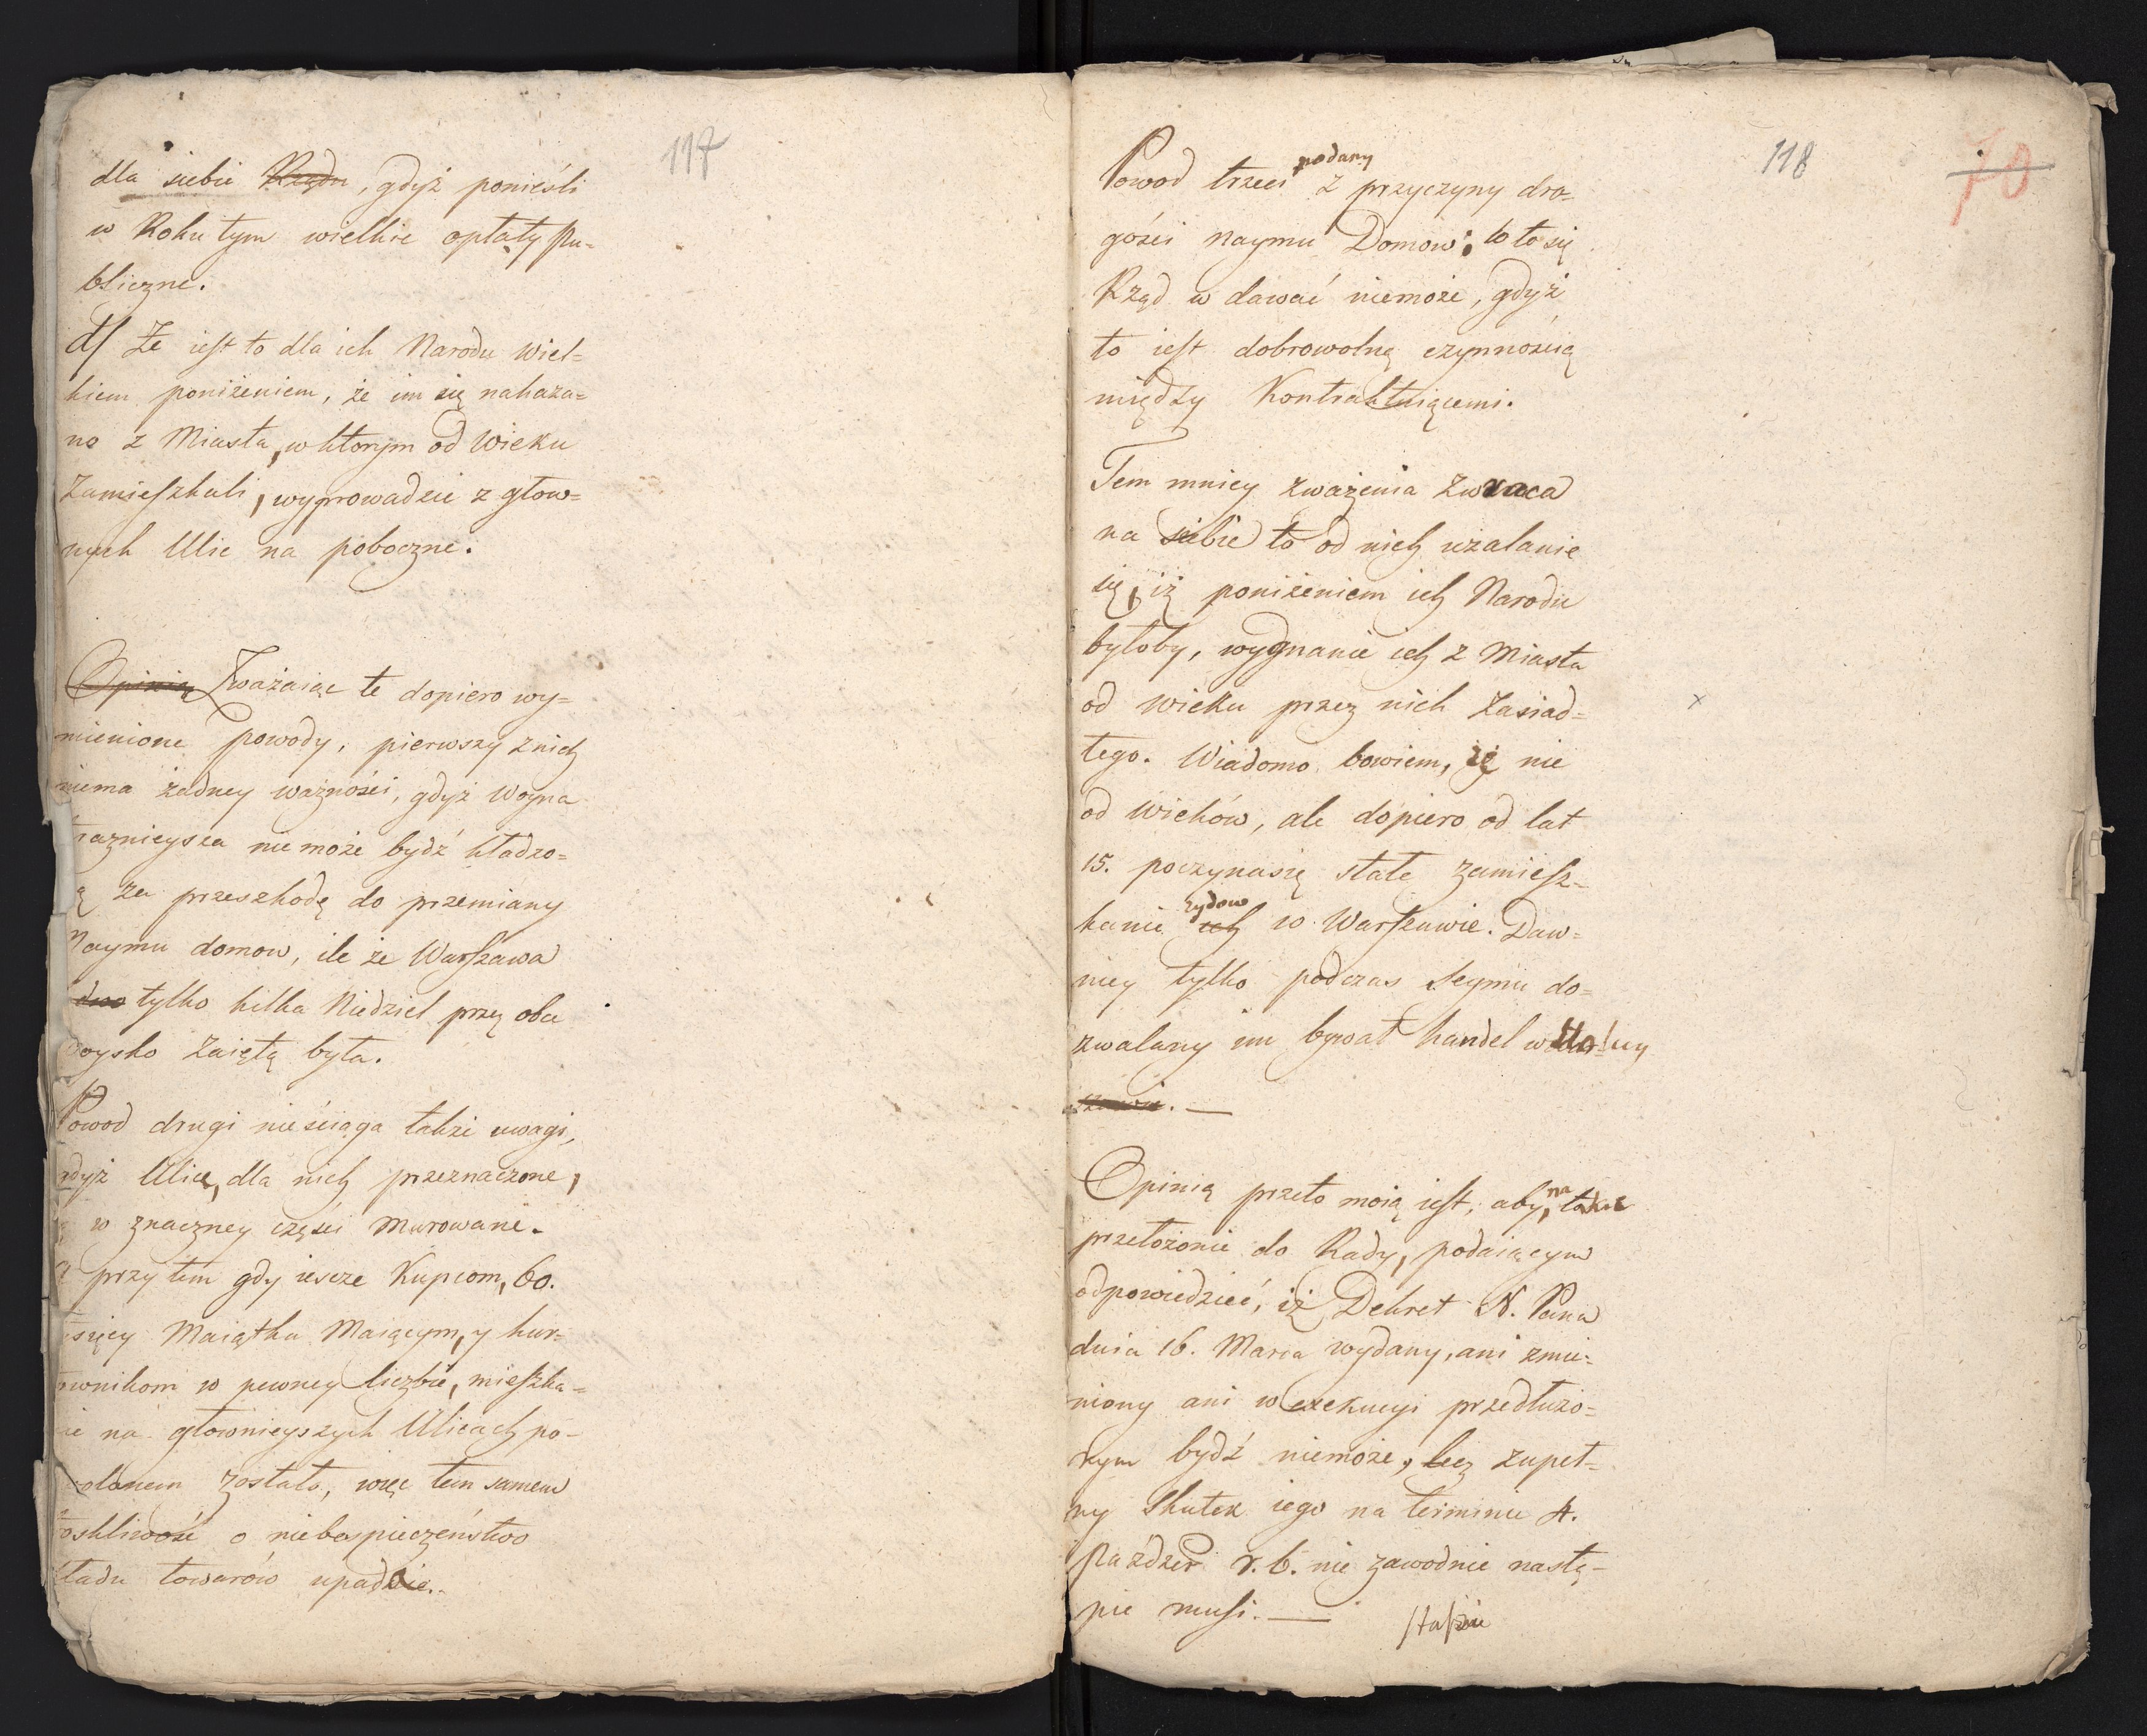 117
dla siebie Rządu, gdyż ponieśli
w Roku tym wielkie opłaty Pu=
bliczne.
d/ Że iest to dla ich Narodu wiel=
kiem poniżeniem, że im się nakaza=
no z Miasta, w ktorym od Wieku
Zamieszkali, wyprowadzić z głow=
nych Ulic na poboczne.
Opinią Zważaiąc te dopiero wy=
mienione powody, pierwszy z nich
niema żadney ważności, gdyż Woyna
raznieysza nie może bydź kładzo=
ą za przeszkodę do przemiany
Naymu domow, ile że Warszawa
tylko kilka Niedziel przez obce
woysko Zaiętą była.
Powod drugi nieściąga także uwagi,
gdyż Ulice, dla nich przeznaczone,
ą w znaczney części Murowane.
a przytem gdy ieszcze Kupcom, 60.
tysięcy Maiątku Maiącym, y hur=
townikom w pewney liczbie, mieszka=
nie na głownieyszych Ulicach po=
wolonem zostało, więc tem samem
troskliwość o niebespieczeństwo
kładu towarów upadnie.
118
70
Powod trzeci podany z przyczyny dro=
gości Naymu Domow; to to się
Rząd wdawać niemoże, gdyż
to iest dobrowolną czynnością
między Kontraktuiącemi.
Tem mniey zważenia zwraca
na siebie to od nich użalanie
się, iż poniżeniem ich Narodu
byłoby, wygnanie ich z Miasta
od wieku przez nich Zasiad=
łego. Wiadomo bowiem, iż nie
od wieków, ale dopiero od lat
15. poczynasię stałe zamiesz=
kanie ich Żydow w Warszawie. Daw=
niey tylko podczas Seymu do=
zwalany im bywał handel w Stolicy
. —
Opinią przeto moią iest, aby na takie
przełożenie do Rady, podaiącym
odpowiedzieć, iż Dekret N. Pana
dnia 16. Marca wydany, ani zmie=
niony ani w exekucyi przedłużo=
nym bydź niemoże, lecz zupeł=
ny Skutek iego na terminie 4.
Paździer r. b. nie zawodnie nastą=
pić musi. — Staszic